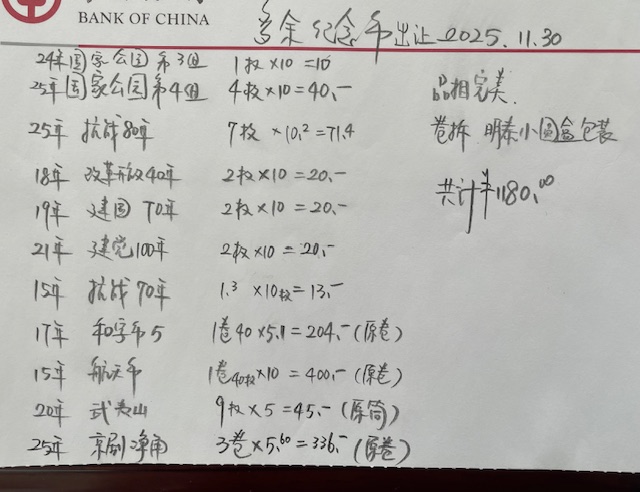 BANK OF CHINA
芳余纪念币出让 2025.11.30
24年国家公园第3组 1枚×10=10
25年国家公园第4组 4枚×10=40.-
25年 抗战80年 7枚×10.2=71.4
18年 改革开放40年 2枚×10=20.-
19年 建国70年 2枚×10=20.-
21年 建党100年 2枚×10=20.-
15年 抗战70年 1.3×10枚=13.-
17年 和字币5 1卷40×5.1=204.-(原卷)
15年 航天币 1卷40枚×10=400.-(原卷)
20年 武夷山 9枚×5=45.-(原筒)
25年 京剧净角 3卷×5.60=336.-(原卷)
品相完美.
卷拆 明泰小圆盒包装
共计¥1180.00